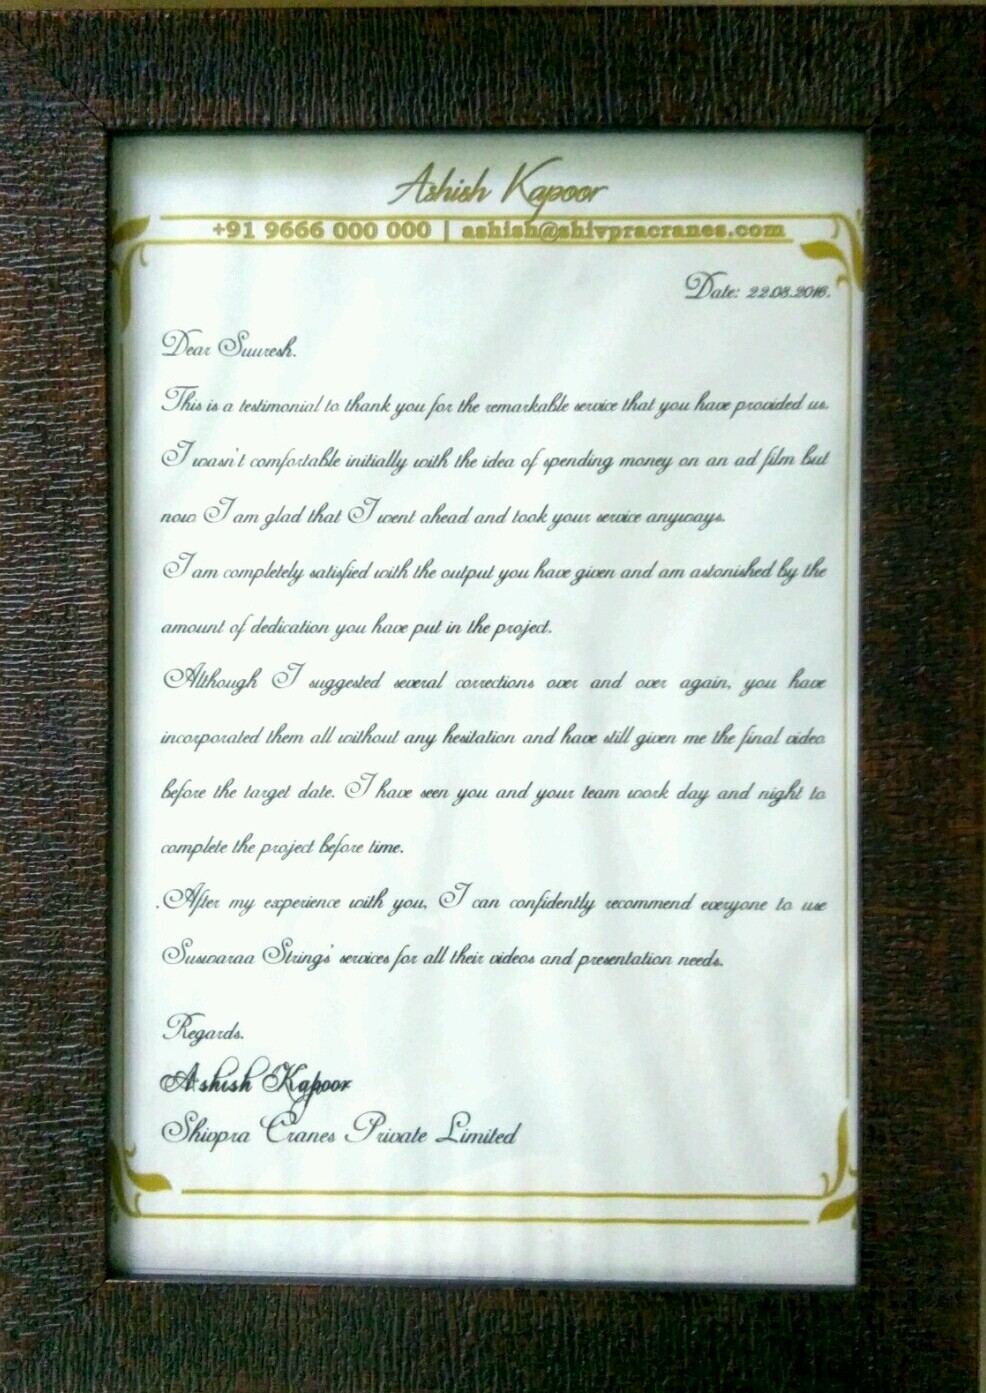 Ashish Kapoor
+91 9666 000 000 | ashish@shivpracranes.com
Date: 22.08.2016.
Dear Suuresh.
This is a testimonial to thank you for the remarkable service that you have provided us.
I wasn't comfortable initially with the idea of spending money on an ad film but
now I am glad that I went ahead and took your service anyways.
I am completely satisfied with the output you have given and am astonished by the
amount of dedication you have put in the project.
Although I suggested several corrections over and over again, you have
incorporated them all without any hesitation and have still given me the final video
before the target date. I have seen you and your team work day and night to
complete the project before time.
.After my experience with you, I can confidently recommend everyone to use
Suswaraa String's services for all their videos and presentation needs.
Regards.
Ashish Kapoor
Shivpra Cranes Private Limited